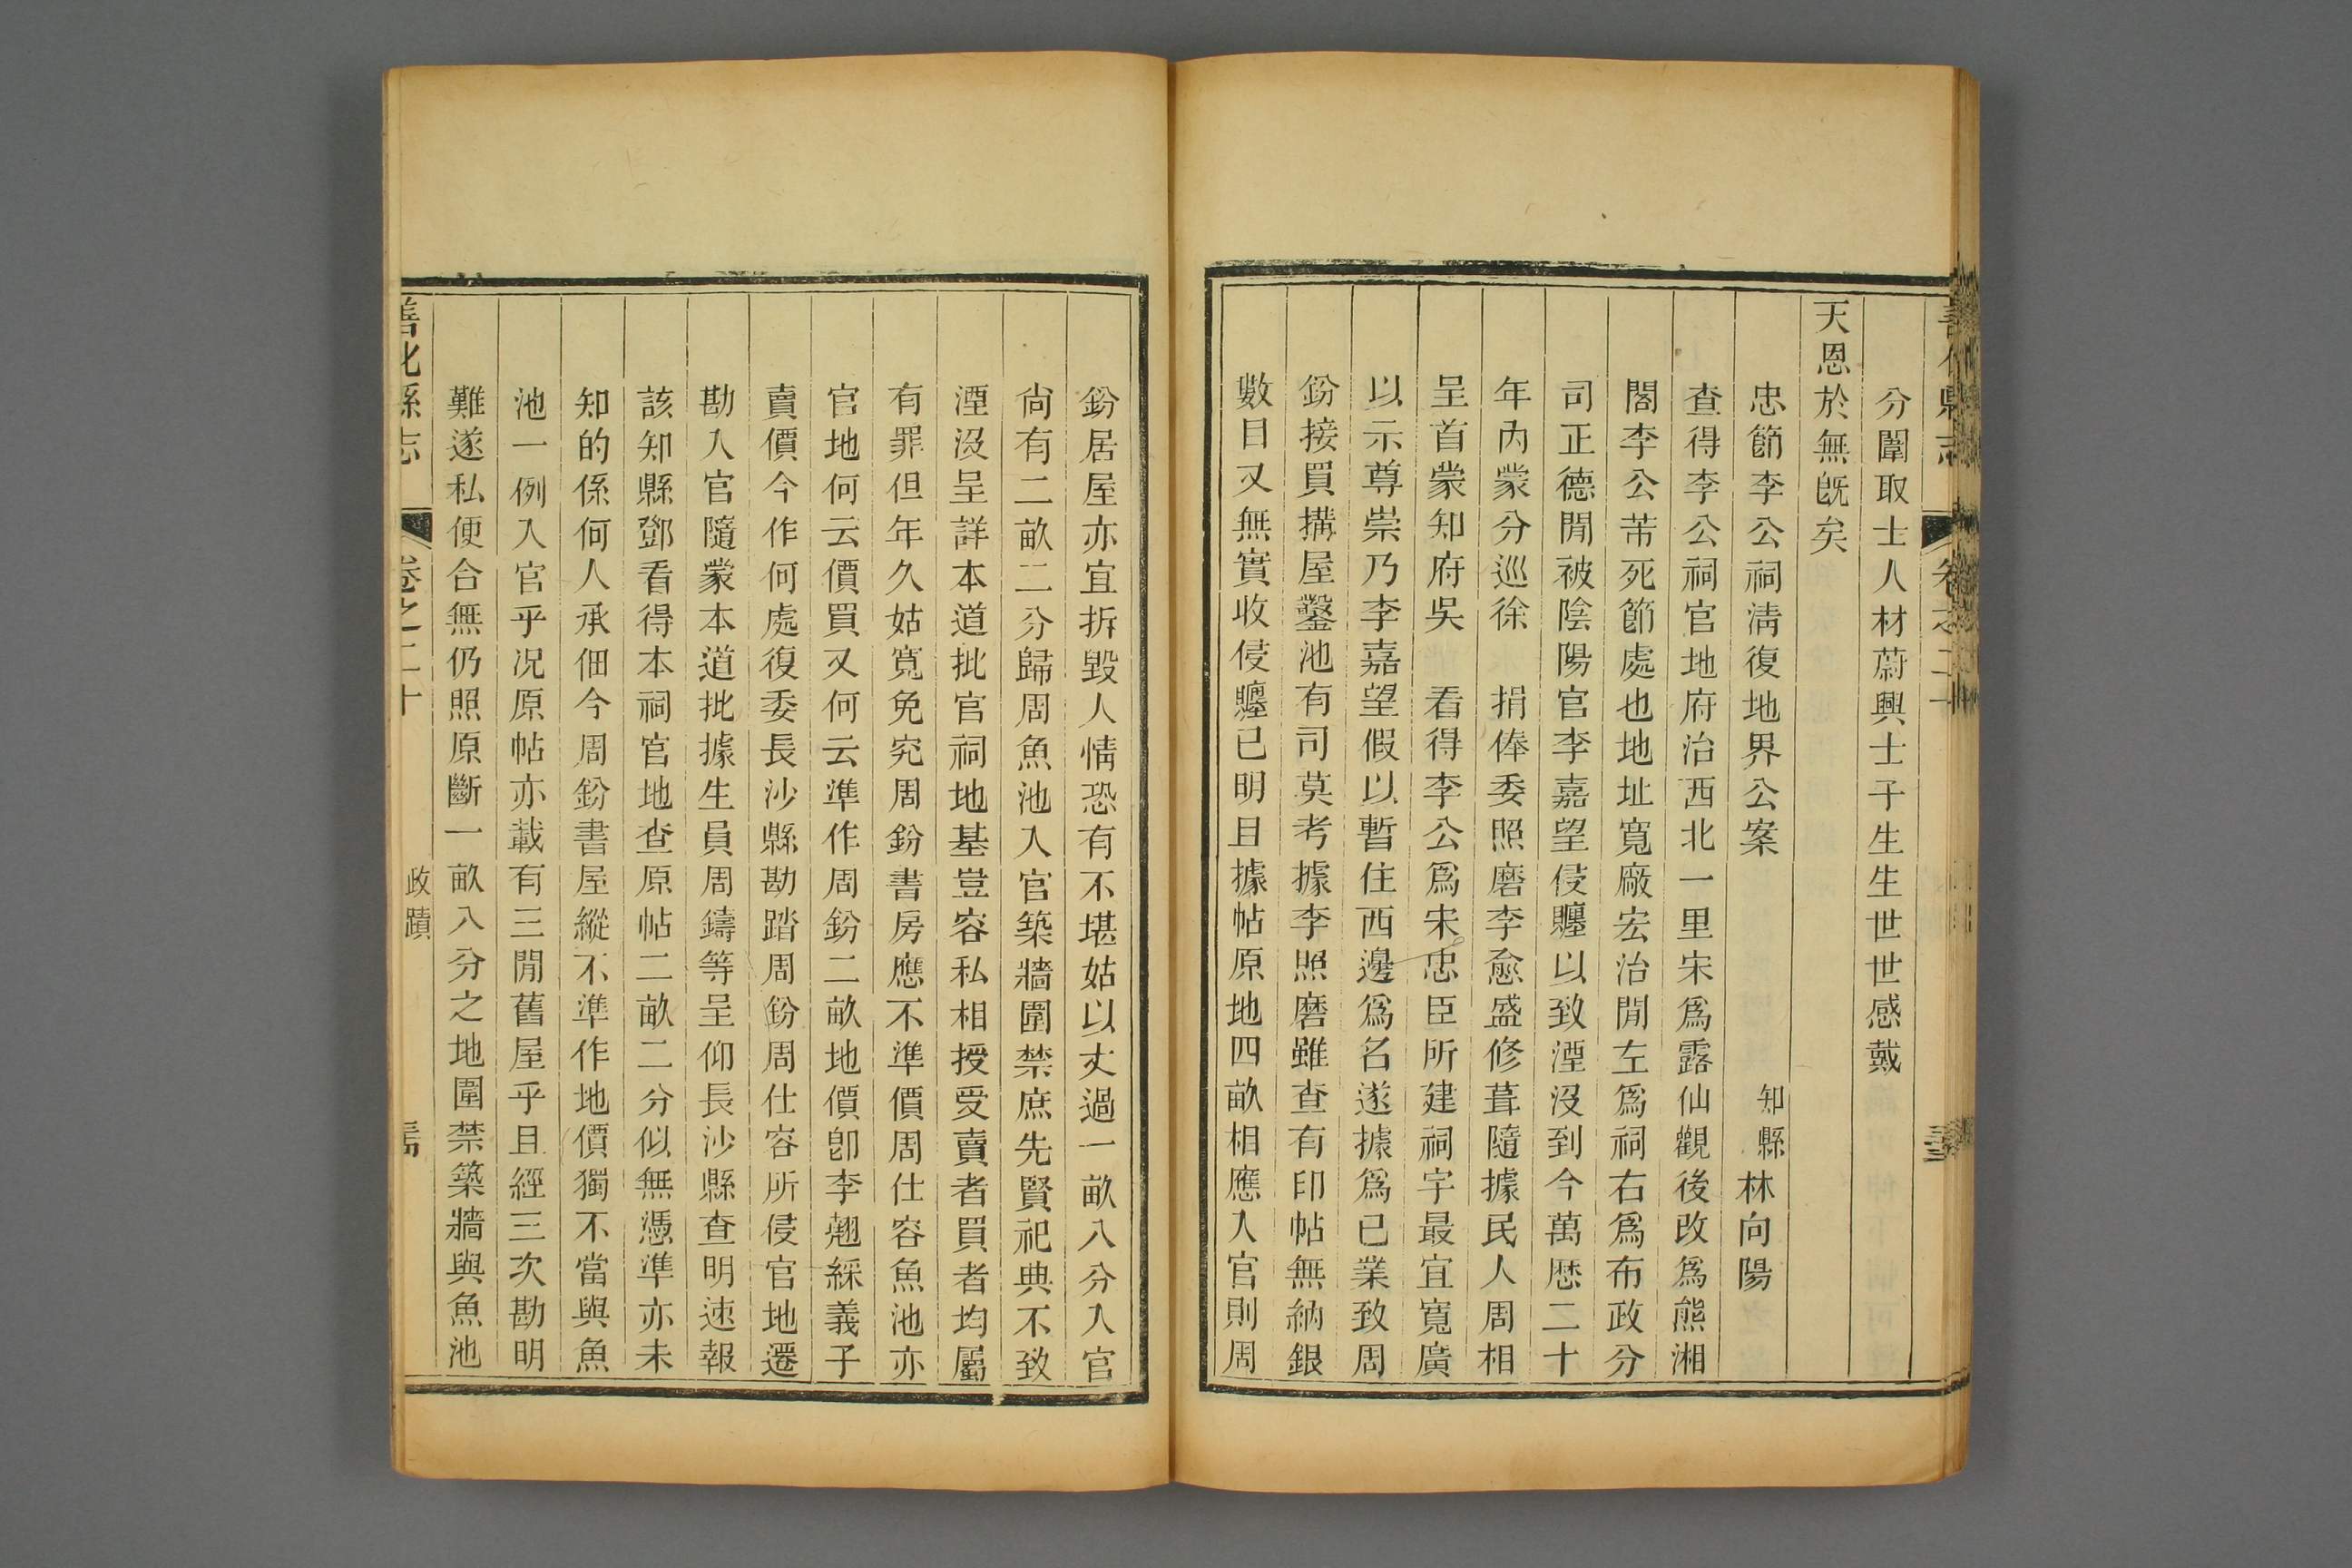 分闈取士人材蔚興士子生生世世感戴
天恩於無旣矣
忠節李公祠淸復地界公案
知縣林向陽
查得李公祠官地府治西北一里宋爲露仙觀後改爲熊湘
閣李公芾死節處也地址寬廠宏治閒左爲祠右爲布政分
司正德閒被陰陽官李嘉望侵䟢以致湮沒到今萬歷二十
年內蒙分巡徐 捐俸委照磨李愈盛修葺隨據民人周相
呈首蒙知府吳 看得李公爲宋忠臣所建祠宇最宜寬廣
以示尊崇乃李嘉望假以暫住西邊爲名遂據爲已業致周
鈖接買搆屋鑿池有司莫考據李照磨雖查有印帖無納銀
數目又無實收侵䟢已明且據帖原地四畝相應入官則周
鈖居屋亦宜拆毀人情恐有不堪姑以丈過一畝八分入官
尙有二畝二分歸周魚池入官築牆圍禁庶先賢祀典不致
湮沒呈詳本道批官祠地基豈容私相授受賣者買者均屬
有罪但年久姑寬免究周鈖書房應不準價周仕容魚池亦
官地何云價買又何云準作周鈖二畝地價卽李翹綵義子
賣價今作何處復委長沙縣勘踏周鈖周仕容所侵官地遷
勘入官隨蒙本道批據生員周鑄等呈仰長沙縣查明速報
該知縣鄧看得本祠官地查原帖二畝二分似無憑準亦未
知的係何人承佃今周鈖書屋縱不準作地價獨不當與魚
池一例入官乎况原帖亦載有三閒舊屋乎且經三次勘明
難遂私便合無仍照原斷一畝八分之地圍禁築牆與魚池
善化縣志 卷之二十 政蹟